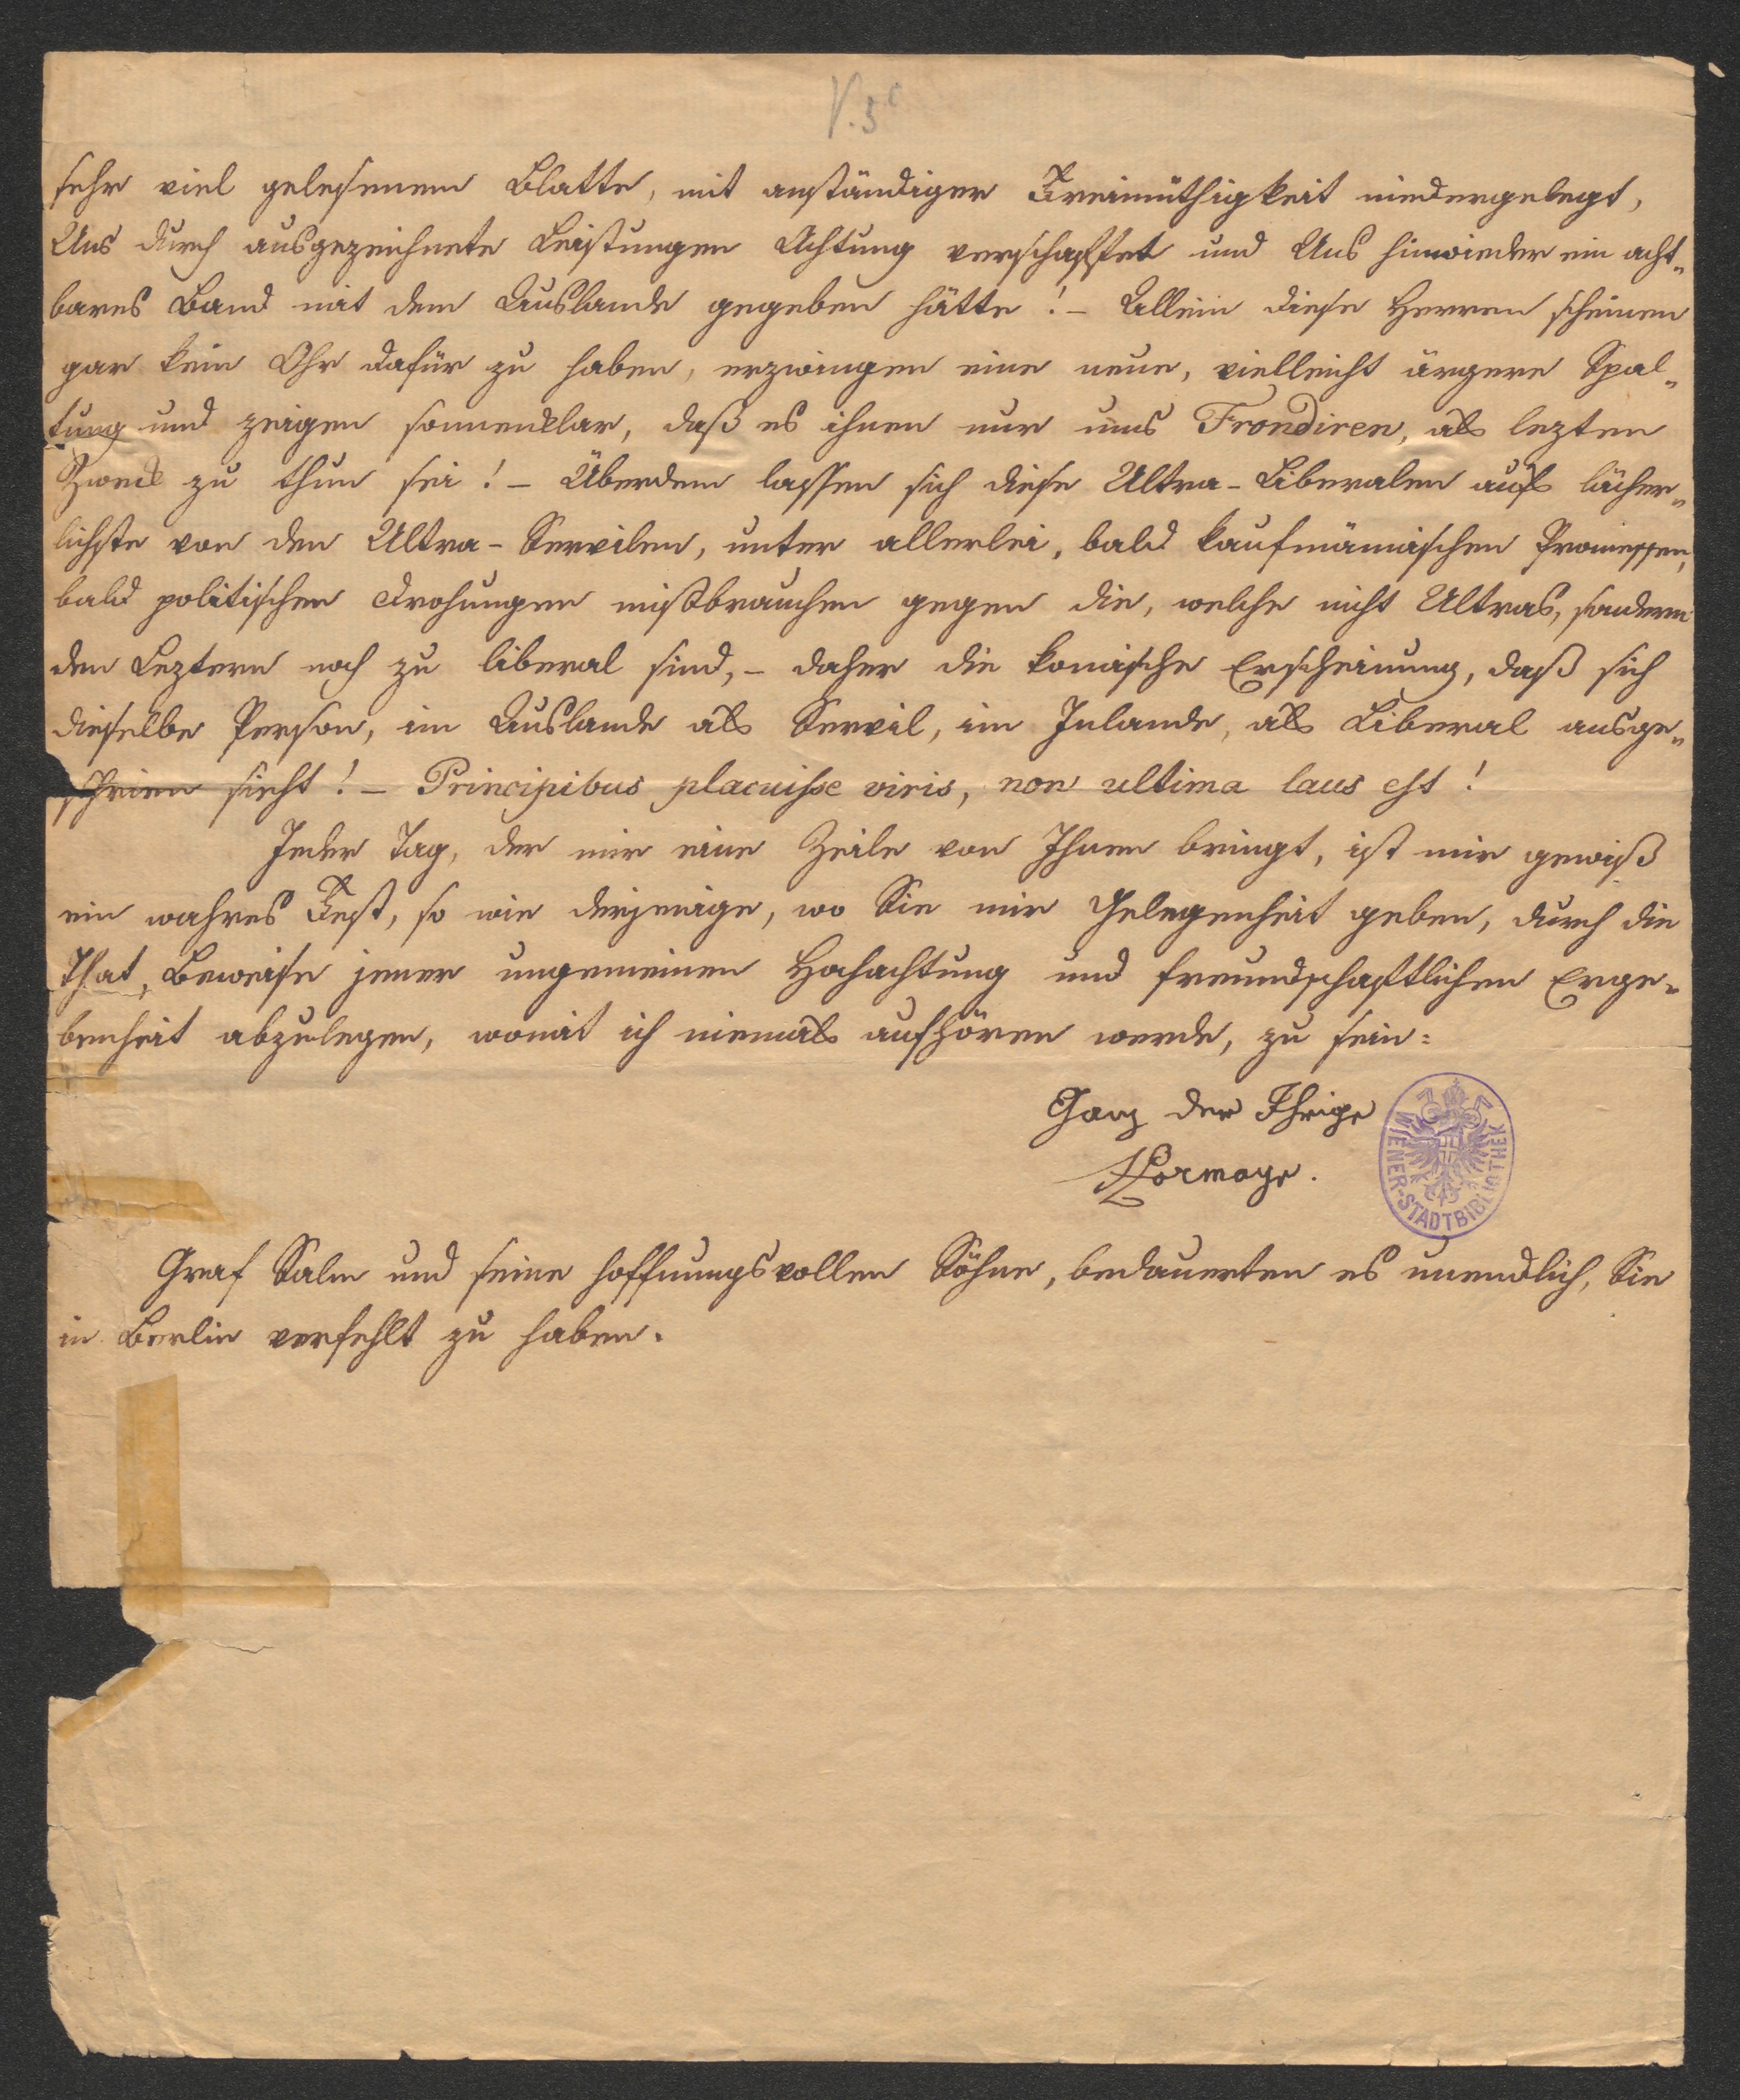 V. 3c
sehr viel gelesenem Blatte, mit anständiger Freimüthigkeit niedergelegt,
Uns durch ausgezeichnete Leistungen Achtung verschaffet und Uns hinwieder ein acht„
bares Band mit dem Auslande gegeben hätte! – Allein diese Herren scheinen
gar kein Ohr dafür zu haben, erzwingen eine neue, vielleicht ärgere Spal„
tung und zeigen sonnenklar, daß es ihnen nur ums Frondiren, als lezten
Zweck zu thun sei! – Überdem lassen sich diese Ultra-Liberalen aufs lächer„
lichste von den Ultra-Servilen, unter allerlei, bald kaufmännischen Promessen,
bald politischen Drohungen mißbrauchen gegen die, welche nicht Ultras, sondern
den Leztern noch zu liberal sind, – daher die komische Erscheinung, daß sich
dieselbe Person, im Auslande als Servil, im Inlande, als Liberal ausge„
schrien sieht! – Principibus placuisse viris, non ultima laus est!
Jeder Tag, der mir eine Zeile von Ihnen bringt, ist mir gewiß
ein wahres Fest, so wie derjenige, wo Sie mir Gelegenheit geben, durch die
That, Beweise jener ungemeinen Hochachtung und freundschaftlichen Erge„
benheit abzulegen, womit ich niemals aufhören werde, zu sein:
Ganz der Ihrige
Hormayr.
WIENER-STADTBIBLIOTHEK
Graf Salm und seine hoffnungsvollen Söhne, bedauerten es unendlich, Sie
in Berlin verfehlt zu haben.